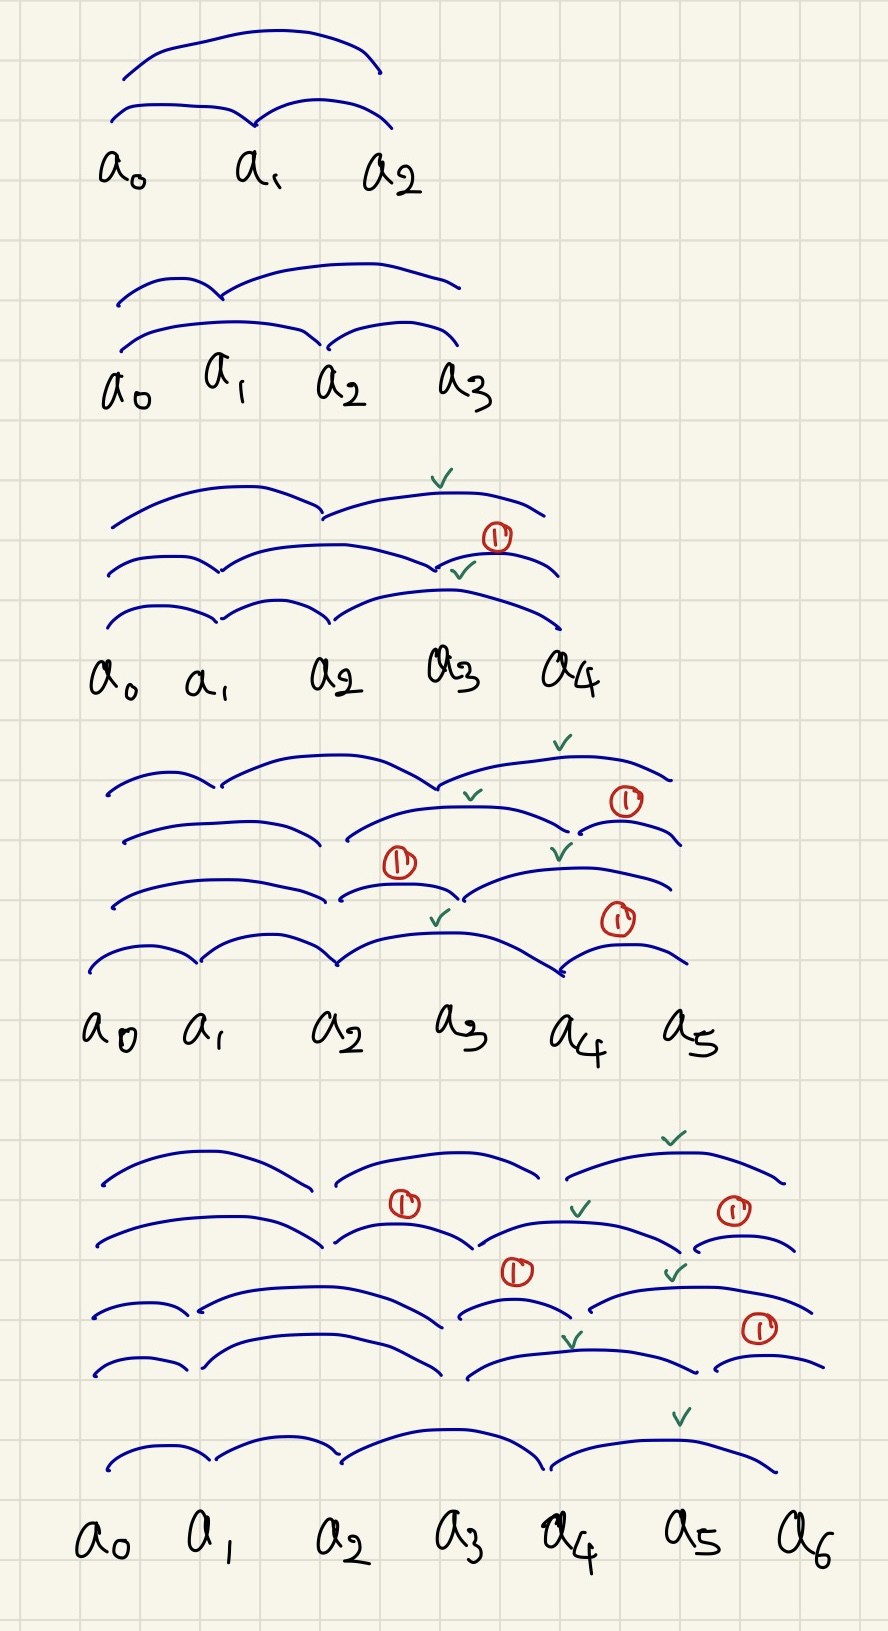 a₀ a₁ a₂
a₀ a₁ a₂ a₃
✓
①
✓
a₀ a₁ a₂ a₃ a₄
✓
✓ ①
① ✓
✓ ①
a₀ a₁ a₂ a₃ a₄ a₅
✓
① ✓ ①
① ✓
✓ ①
✓
a₀ a₁ a₂ a₃ a₄ a₅ a₆